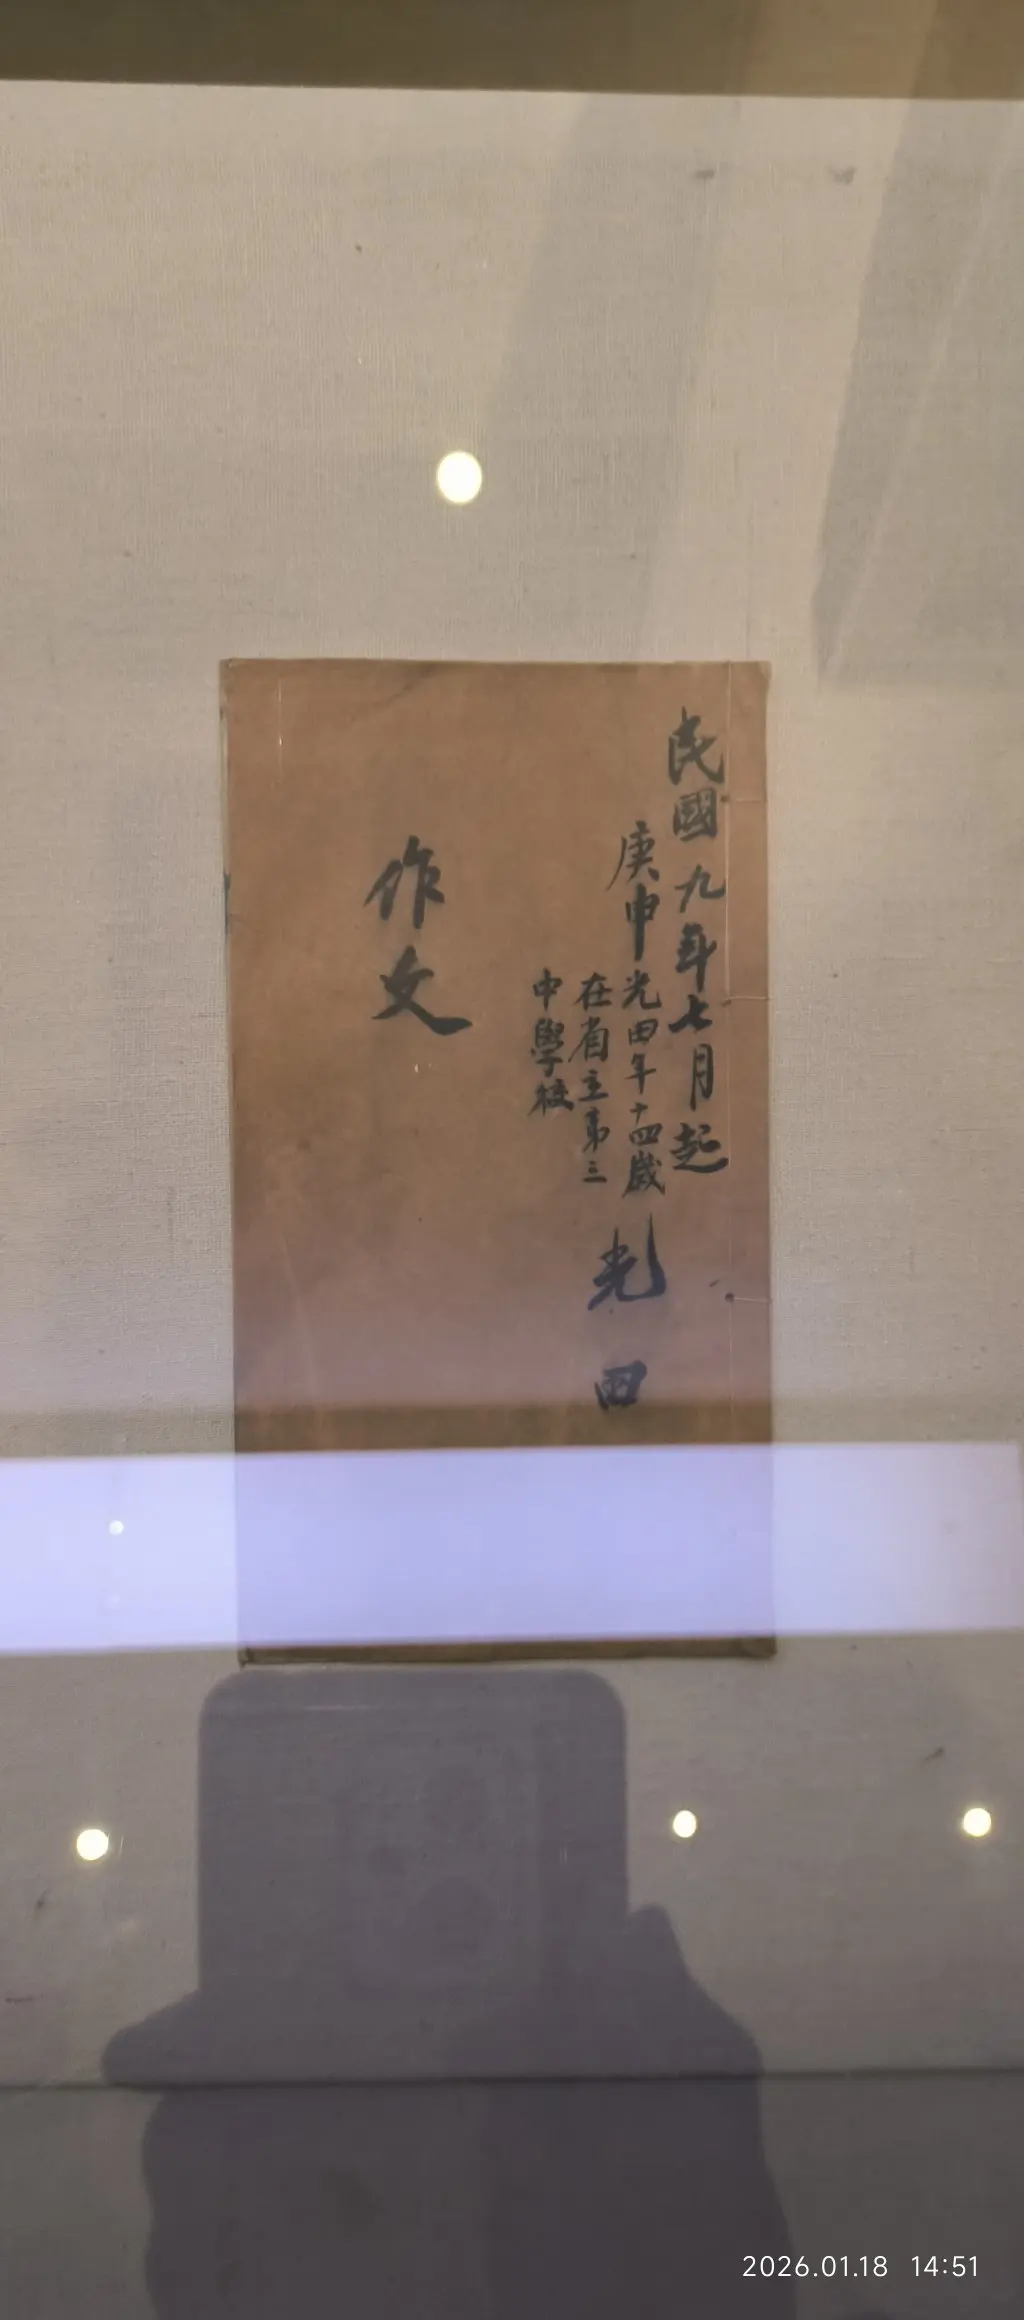 民國九年七月起
庚申
光田年十四歲
在省立第三
中學校
光田
作文
2026.01.18 14:51